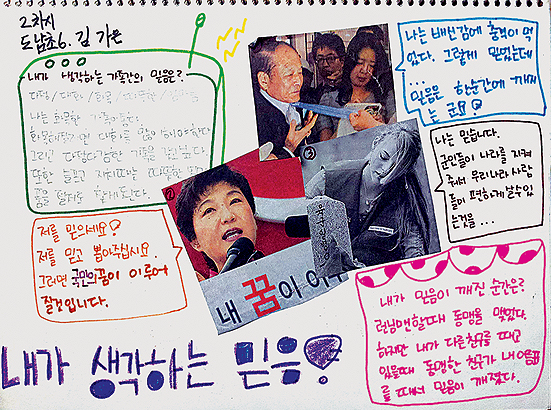 2차시
도남초6. 김가은
내가 생각하는 가족간의 믿음은?
나는 화목한 가족
그리고 다정다감한 가족은
또한 늘
나는 배신감에 눈물이 먹
있다. 그렇게 믿었는데
...
믿음은 한순간에 깨지
는 군!!
나는 믿습니다.
군인들이 나라를 지켜
줘서 우리나라 사람
들이 편하게 살수있
는것을 ...
①
③
내 꿈이 이
저를 믿으세요?
저를 믿고 뽑아주십시요.
그러면 국민의꿈이 이루어
질것입니다.
내가 믿음이 깨진 순간은?
런닝맨할때 동맹을 맺었다.
하지만 내가 다른친구를 때고
있을때 동맹한 친구가 내이름표
를 때서 믿음이 깨졌다.
내가 생각하는 믿음!